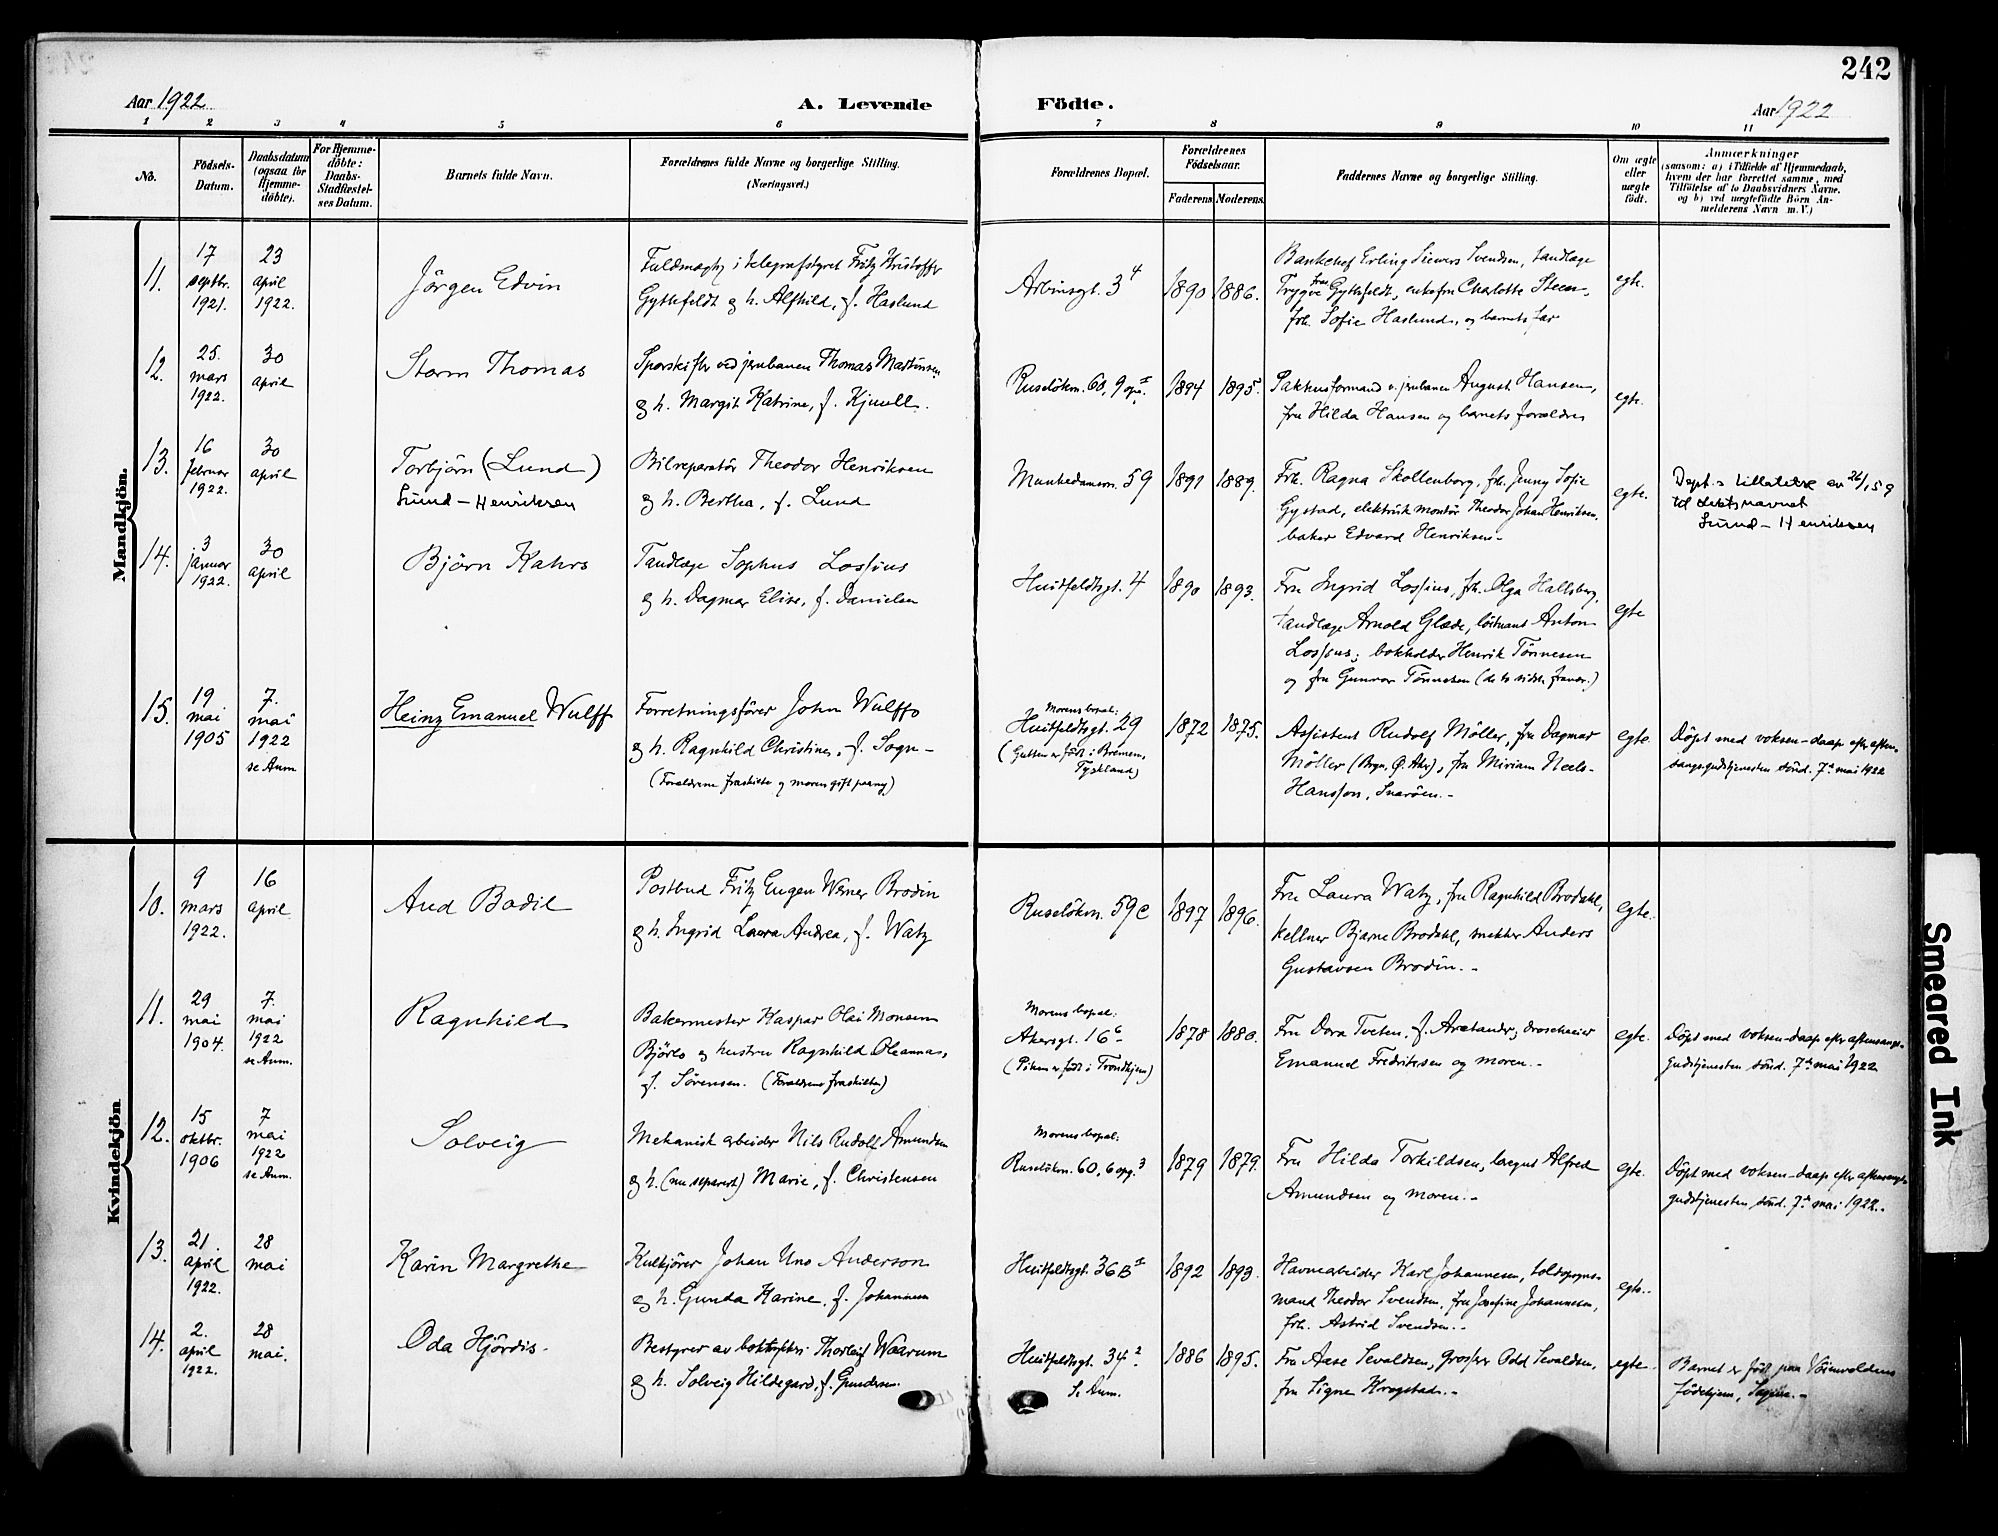 242
Aar 1922
A. Levende
Födte.
Aar 1922
1 2 3 4 5 6 7 8 9 10 11
No.
Födsels-
Datum.
Daabsdatum
(ogsaa for
Hjemme-
døbte).
For Hjemme-
døbte:
Daabs-
Stadfæstel-
ses Datum.
Barnets fulde Navn.
Forældrenes fulde Navne og borgerlige Stilling.
(Næringsvei.)
Forældrenes Bopæl.
Forældrenes
Födselsaar.
Faderens Moderens
Faddernes Navne og borgerlige Stilling.
Om ægte
eller
uægte
født.
Anmærkninger
(saasom: a) i Tilfælde af Hjemmedaab,
hvem der har forrettet samme, med
Tilføielse af to Daabsvidners Navne.
og b) ved uægtefødte Börn An-
melderens Navn m. V.)
Mandkjön.
11.
17
septbr.
1921.
23
april
1922.
Jörgen Edvin
Fuldmægtig i telegrafstyret Fritz Kristoffer
Gythfeldt og h. Alfhild, f. Haslund
Arbinsgt. 3 4
1890 1886.
Bankchef Erling Siewers Svendsen, tandlæge
Trygve Gythfeldt, enkefru Charlotte Steen,
frk. Sofie Haslund, og barnets far
egte.
12.
25.
mars
1922.
30
april
Storm Thomas
Sporskifter ved jernbanen Thomas Martinsen
og h. Margit Katrine, f. Kjinell.
Ruselökvn. 60, 9 opg. I
1894 1895.
Pakhusformand v. jernbanen August Hansen,
fru Hilda Hansen og barnets forældre
egte.
13.
16
februar
1922.
30
april
Torbjörn (Lund)
Lund - Henriksen
Bilreparatör Theodor Henriksen
og h. Berthea, f. Lund
Munkedamsvn. 59
1891 1889.
Frk. Ragna Skollenborg, frk. Jenny Sofie
Gystad, elektrisk montör Theodor Johan Henriksen,
baker Edvard Henriksen -
egte.
Dept.s tillatelse av 26/1 59
til slektsnavnet
Lund - Henriksen
14.
3
januar
1922.
30
april
Björn Kahrs
Tandlæge Sophus Lossius
og h. Dagmar Elise, f. Danielsen
Huitfeldtsgt. 4
1890 1893.
Fru Ingrid Lossius, frk. Olga Hallsberg,
tandlæge Arnold Glæde, löitnant Anton
Lossius; bokholder Henrik Tönnesen
og fru Gunvor Tönnesen (de to sidste fravær.)
egte
15.
19
mai
1905
7.
mai
1922
se Anm.
Heinz Emanuel Wulff
Forretningsförer John Wulff
og h. Ragnhild Christine, f. Sogn -
(Forældrene fraskilte og moren gift paany)
Morens bopæl:
Huitfeldtsgt. 29
(Gutten er född i Bremen,
Tyskland)
1872 1875.
Assistent Rudolf Möller, fru Dagmar
Möller (Bryn, Ø. Aker), fru Miriam Neels-
Hansson, Snaröen. -
egte.
Döpt med voksen-daap efter aften-
sangsgudstjenesten sönd. 7de mai 1922
Kvindekjön
10.
9
mars
1922.
16
april
Aud Bodil
Postbud Fritz Eugen Werner Brodin
og h. Ingrid Laura Andrea, f. Watz
Ruselökvn. 59 c
1897 1896.
Fru Laura Watz, fru Ragnhild Brodahl,
kellner Bjarne Brodahl, snekker Anders
Gustavsen Brodin. -
egte.
11.
29
mai
1904.
7.
mai
1922
se Anm.
Ragnhild
Bakermester Kaspar Olai Monsen
Björlo og hustru Ragnhild Oleanna,
f. Sörensen. (Forældrene fraskilte)
Morens bopæl:
Akersgt. 16 c -
(Piken er född i Trondhjem)
1878 1880.
Fru Dora Tveten, f. droscheeier
Emanuel Fredriksen og moren. -
egte.
Döpt med voksen-daap efter aftensangs-
gudstjenesten sönd. 7de mai 1922
12.
15
oktbr.
1906
7
mai
1922
se Anm.
Solveig
Mekanisk arbeider Nils Rudolf Amundsen
og h. (nu separert) Marie, f. Christensen
Morens bopæl:
Ruselökvn. 60, 6 opg. 3
1879 1879.
Fru Hilda Torkildsen, Alfred
Amundsen og moren. -
egte.
Döpt med voksen-daap efter aftensangs-
gudstjenesten sönd. 7de mai 1922. -
13.
21.
april
1922.
28
mai
Karin Margrethe
Kulkjörer Johan Uno Anderson
og h. Gunda Karine, f. Johannesen
Huitfeldtsgt. 36 B I
1892 1893.
Havnearbeider Karl Johannesen, toldopsyns-
mand Theodor Svendsen, fru Josefine Johannesen,
frk. Astrid Svendsen. -
egte.
14.
2.
april
1922.
28
mai.
Oda Hjördis -
Bestyrer av boktrykkeri Thorleif Waarum
og h. Solveig Hildegard, f. Gundersen.
Huitfeldtsgt. 34 2.
Se Anm.
1886 1895.
Fru Aase Sevaldsen, grosserer Odd Sevaldsen,
fru Signe Krogstad. -
egte.
Barnet er född paa Voienvoldens
födehjem, Sagene. -
Smeared Ink